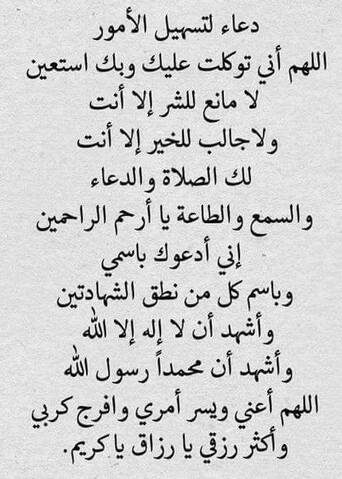 دعاء لتسهيل الأمور
اللهم أني توكلت عليك وبك استعين
لا مانع للشر إلا أنت
ولاجالب للخير إلا أنت
لك الصلاة والدعاء
والسمع والطاعة يا أرحم الراحمين
إني أدعوك باسمي
وباسم كل من نطق الشهادتين
وأشهد أن لا إله إلا الله
وأشهد أن محمداً رسول الله
اللهم أعني ويسر أمري وافرج كربي
وأكثر رزقي يا رزاق يا كريم.